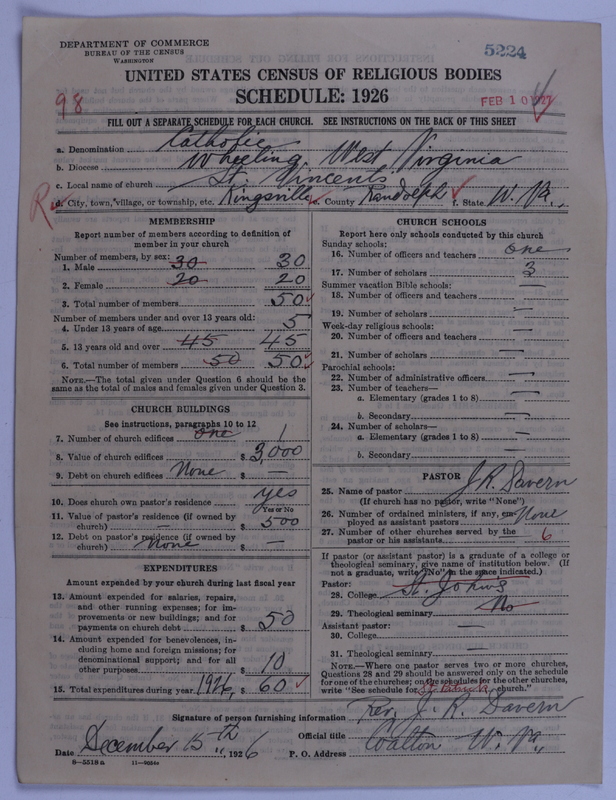 DEPARTMENT OF COMMERCE
BUREAU OF THE CENSUS
WASHINGTON
5224
UNITED STATES CENSUS OF RELIGIOUS BODIES
SCHEDULE: 1926
98
FEB 10 '27
FILL OUT A SEPARATE SCHEDULE FOR EACH CHURCH. SEE INSTRUCTIONS ON THE BACK OF THIS SHEET
a. Denomination Catholic
b. Diocese Wheeling, West Virginia
c. Local name of church St. Vincents
d. City, town, village, or township, etc. Kingsville e. County Randolph f. State W. Va.
MEMBERSHIP
Report number of members according to definition of
member in your church
Number of members, by sex:
1. Male 30 30
2. Female 20 20
3. Total number of members 50
Number of members under and over 13 years old:
4. Under 13 years of age 5
5. 13 years old and over 45 45
6. Total number of members 50 50
NOTE.—The total given under Question 6 should be
same as the total of males and females given under Question 3.
CHURCH BUILDINGS
See instructions, paragraphs 10 to 12
7. Number of church edifices one 1
8. Value of church edifices $ 3,000
9. Debt on church edifices None $ —
10. Does church own pastor's residence yes
Yes or No
11. Value of pastor's residence (if owned by
church) — $ 500
12. Debt on pastor's residence (if owned by
church) None $ —
EXPENDITURES
Amount expended by your church during last fiscal year
13. Amount expended for salaries, repairs,
and other running expenses; for im-
provements or new buildings; and for
payments on church debt $ 50
14. Amount expended for benevolences, in-
cluding home and foreign missions; for
denominational support; and for all
other purposes $ 10
15. Total expenditures during year 1926 $ 60
CHURCH SCHOOLS
Report here only schools conducted by this church
Sunday schools:
16. Number of officers and teachers one
17. Number of scholars 3
Summer vacation Bible schools:
18. Number of officers and teachers —
19. Number of scholars —
Week-day religious schools:
20. Number of officers and teachers —
21. Number of scholars —
Parochial schools:
22. Number of administrative officers —
23. Number of teachers—
a. Elementary (grades 1 to 8) —
b. Secondary —
24. Number of scholars—
a. Elementary (grades 1 to 8) —
b. Secondary —
PASTOR
25. Name of pastor J. R. Davern
(If church has no pastor, write "None")
26. Number of ordained ministers, if any, em-
ployed as assistant pastors None
27. Number of other churches served by the
pastor or his assistants 6
If pastor (or assistant pastor) is a graduate of a college or
theological seminary, give name of institution below. (If
not a graduate, write "No" in the space indicated.)
Pastor:
28. College St. John's
29. Theological seminary No
Assistant pastor:
30. College —
31. Theological seminary —
NOTE.—Where one pastor serves two or more churches,
Questions 28 and 29 should be answered only on the schedule
for one of the churches; on the schedules for the other churches,
write "See schedule for St. Patrick church."
Signature of person furnishing information Rev. J. R. Davern
Official title
Date December 15th, 1926 P. O. Address Coalton W. Va.
8—5518a 11—9054a